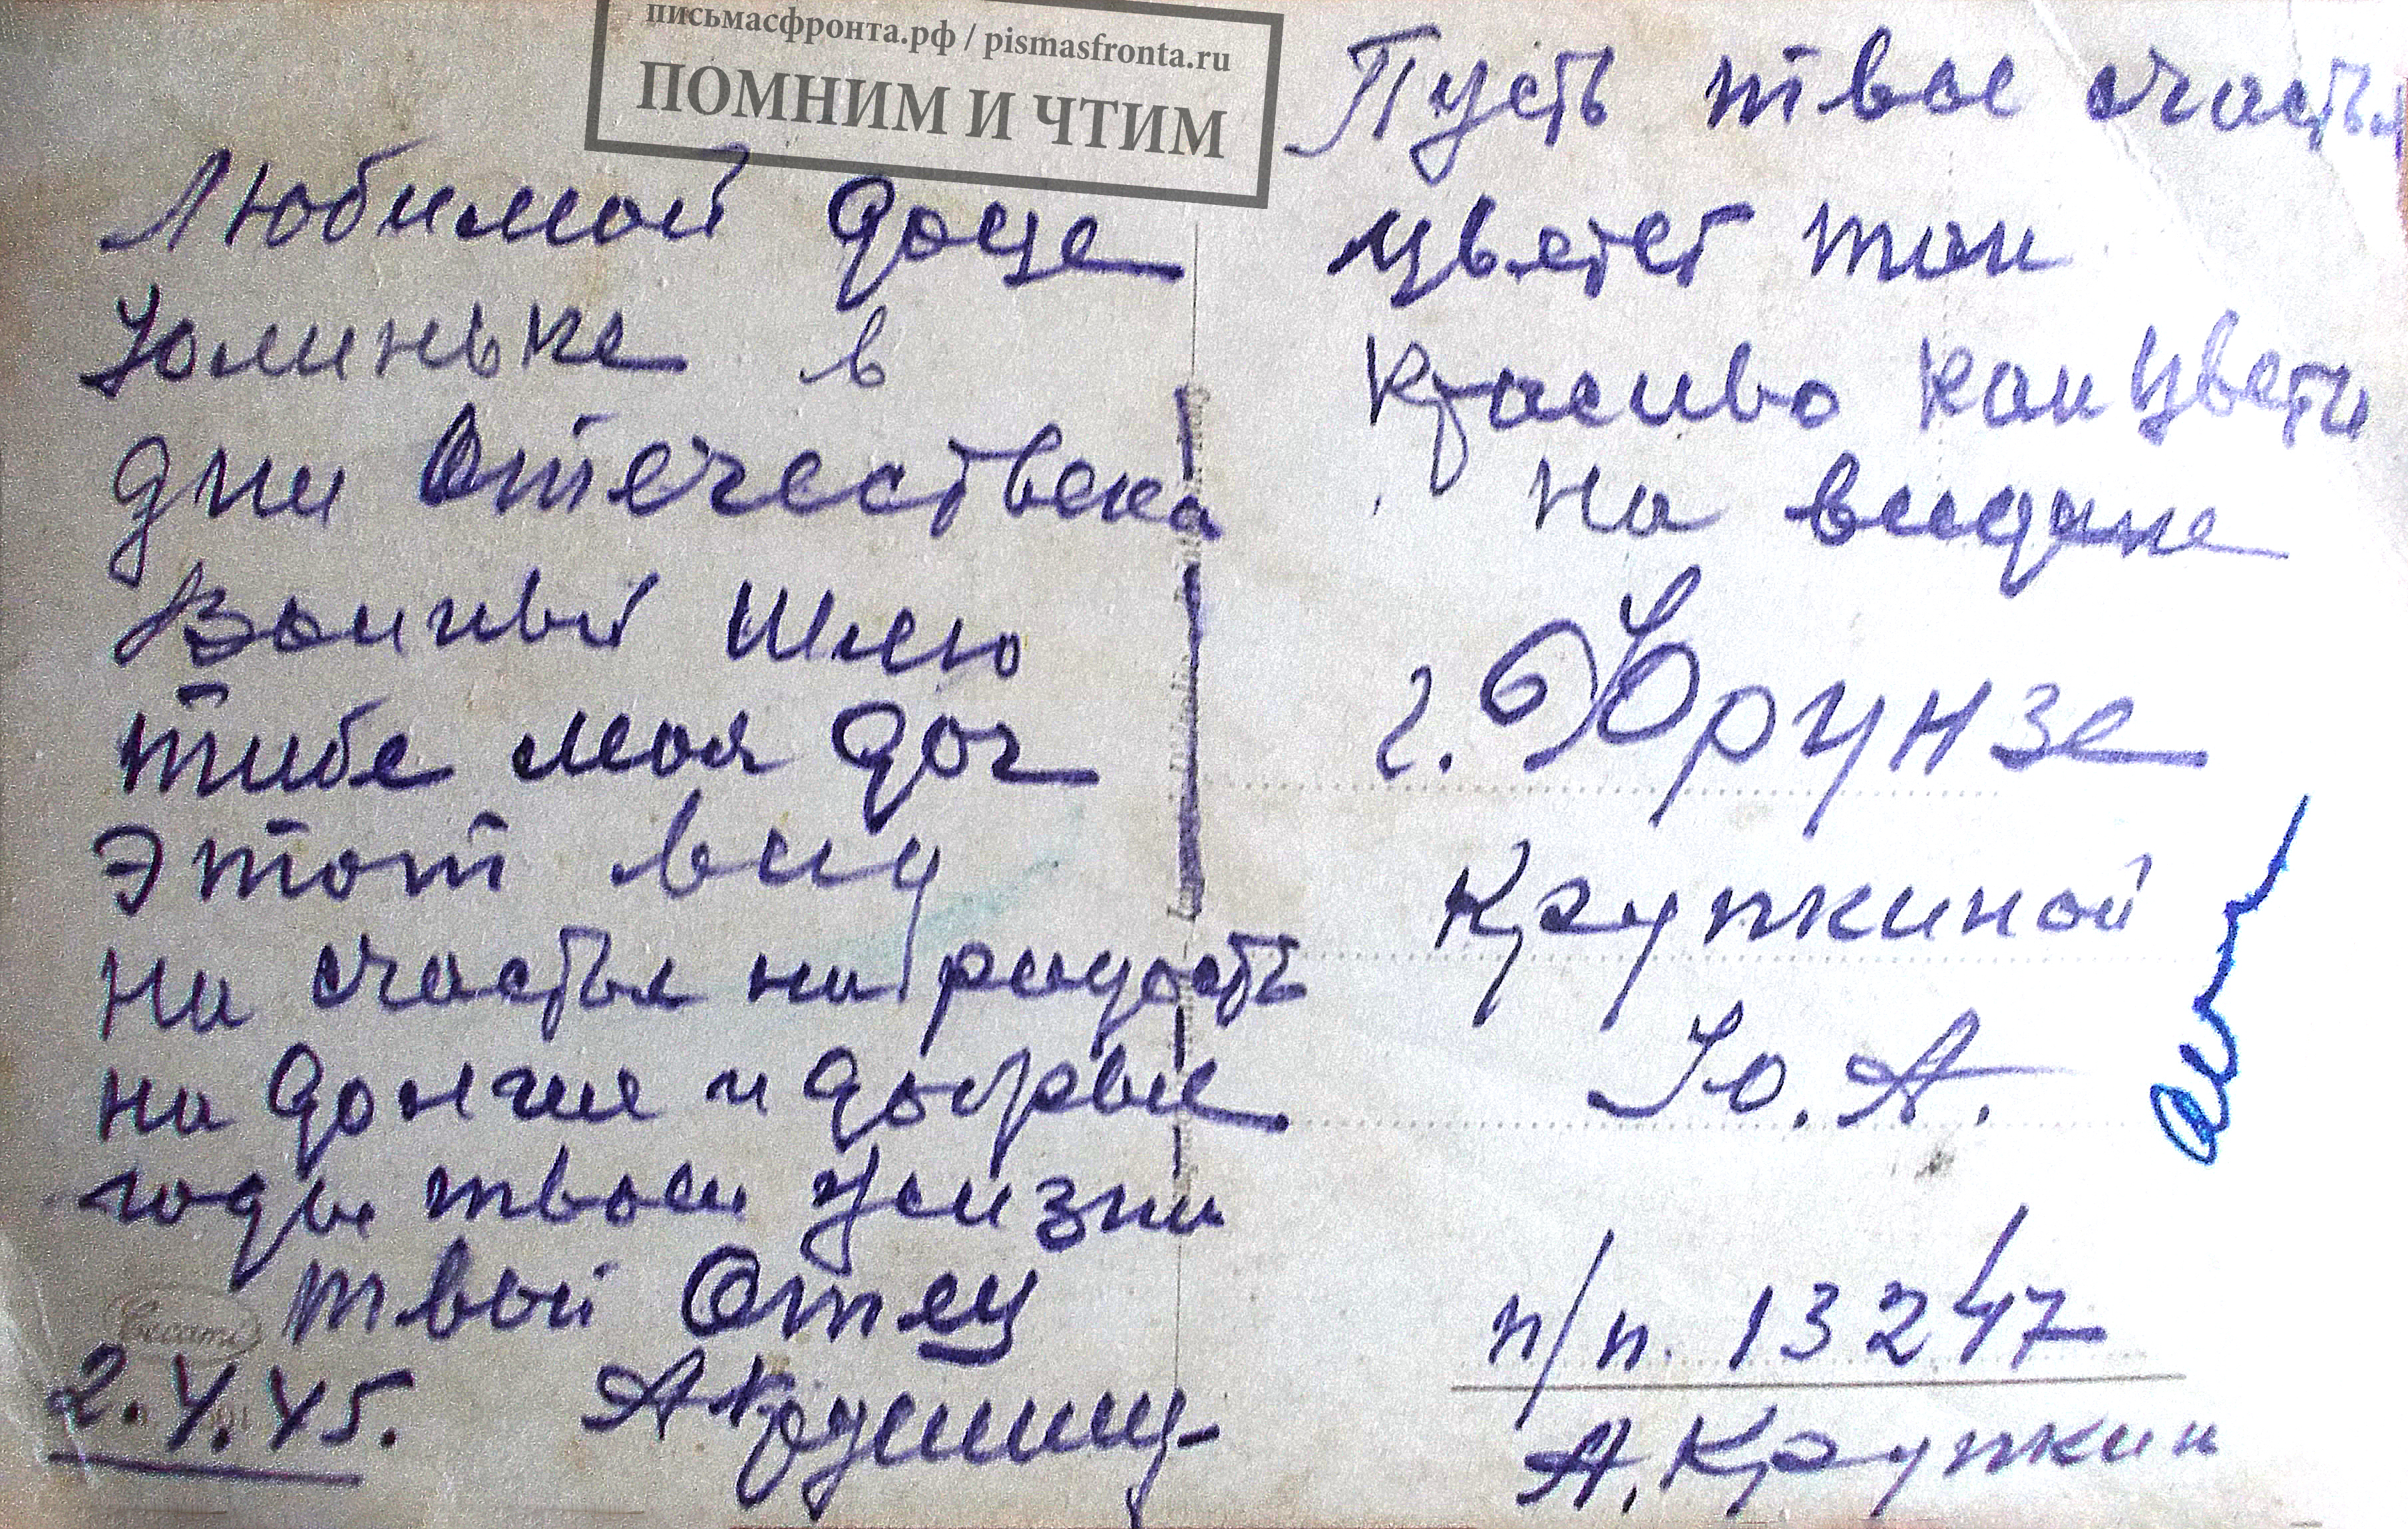 письмасфронта.рф / pismasfronta.ru
ПОМНИМ И ЧТИМ
Любимой доце
Юлиньке в
дни Отечествена
Войный шлю
тибе моя доч
этот вид
на счастья на радость
на долгие и добрые
годы твоей жизни
твой Отец
2.4.45.
Пусть твое счастья
цветет так
красиво как цветы
на видике
г. Фрунзе
Крупкиной
Ю. А.
п/п. 13247
А. Крупкин